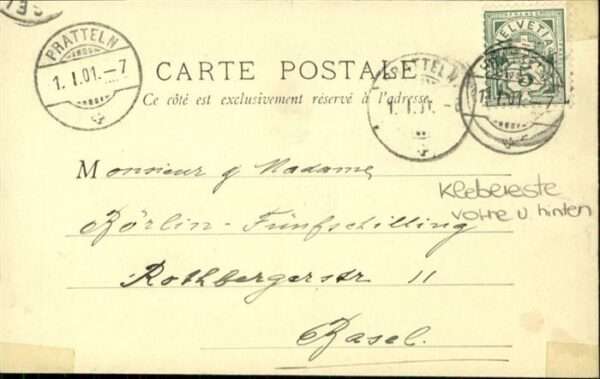 PRATTELN
1. I.01.–7
CARTE POSTALE
Ce côté est exclusivement réservé à l'adresse.
PRATTELN
1. I.01.–
HELVETIA
5
1. I.01.–7
Monsieur & Madame
Börlin-Fünfschilling
Rothbergerstr 11
Basel.
Klebereste
vorne u hinten